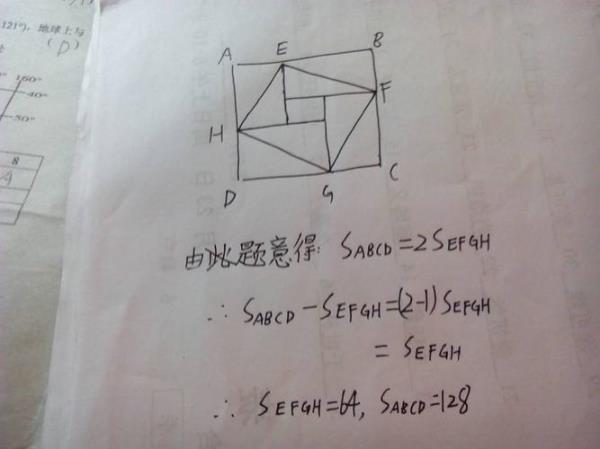 121°),地球上与
(D)
160°
40°
50°
8
A E B
F
H
D G C
由此题意得: SABCD=2SEFGH
∴ SABCD-SEFGH=(2-1)SEFGH
= SEFGH
∴ SEFGH=64, SABCD=128